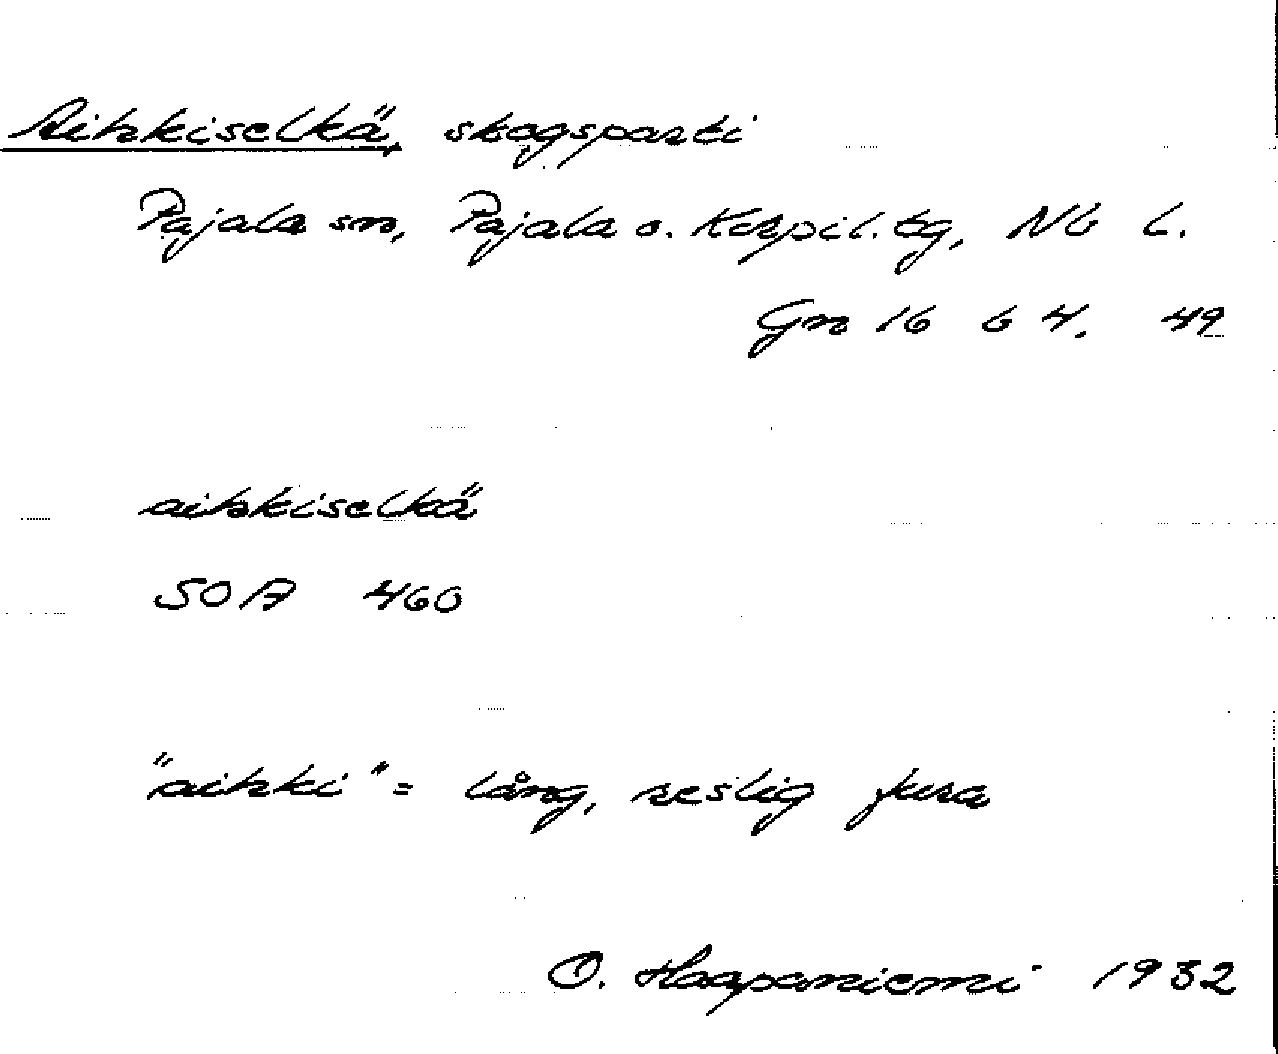 Aihkiselkä, skogsparti
Pajala sn, Pajala o. Korpil. tg, Nb L.
Gm 16 b 4. 49
aihkiselkä
SOA 460
"aihki" = lång, reslig fura
O. Haapaniemi 1932